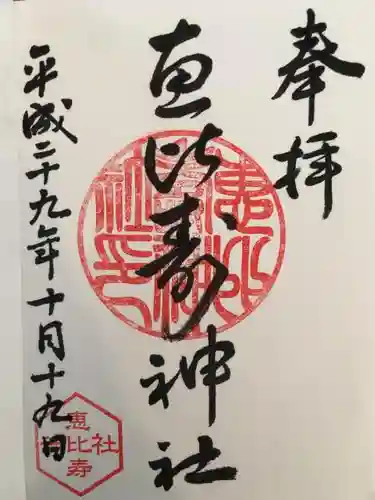 奉拝
恵比寿神社
平成二十九年十月十九日
恵比寿
社